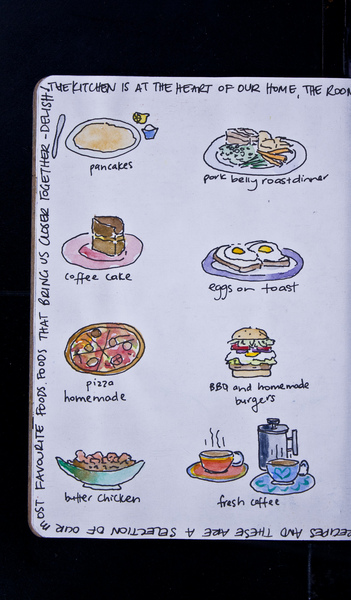 THE KITCHEN IS AT THE HEART OF OUR HOME, THE ROOM
pancakes
pork belly roast dinner
coffee cake
eggs on toast
pizza
homemade
BBQ and homemade
burgers
butter chicken
fresh coffee
RECIPES AND THESE ARE A SELECTION OF OUR M
OST FAVOURITE FOODS. FOODS THAT BRING US CLOSER TOGETHER - DELISH!